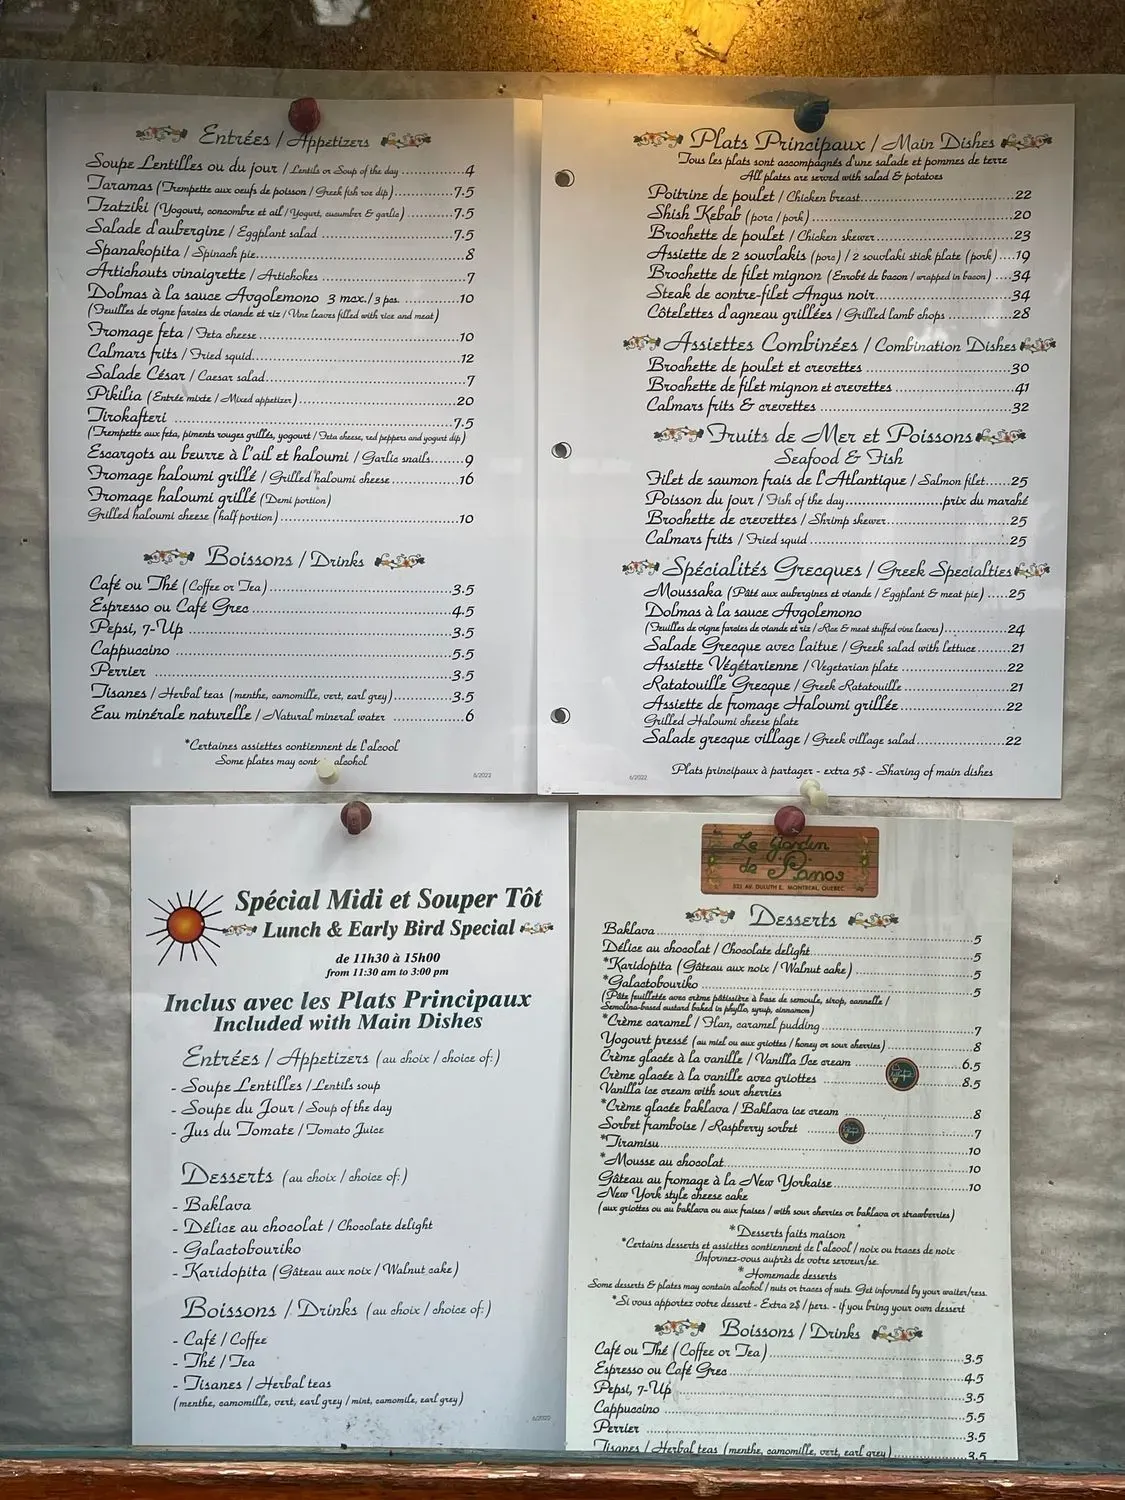 Entrées / Appetizers
Soupe Lentilles ou du jour / Lentils or Soup of the day 4
Taramas (Trempette aux oeufs de poisson / Greek fish roe dip) 7.5
Tzatziki (Yogourt, concombre et ail / Yogurt, cucumber & garlic) 7.5
Salade d'aubergine / Eggplant salad 7.5
Spanakopita / Spinach pie 8
Artichauts vinaigrette / Artichokes 7
Dolmas à la sauce Avgolemono 3 mcx. / 3 pcs. 10
(Feuilles de vigne farcies de viande et riz / Vine leaves filled with rice and meat)
Fromage feta / Feta cheese 10
Calmars frits / Fried squid 12
Salade César / Caesar salad 7
Pikilia (Entrée mixte / Mixed appetizer) 20
Tirokafteri 7.5
(Trempette aux feta, piments rouges grillés, yogourt / Feta cheese, red peppers and yogurt dip)
Escargots au beurre à l'ail et haloumi / Garlic snails 9
Fromage haloumi grillé / Grilled haloumi cheese 16
Fromage haloumi grillé (Demi portion)
Grilled haloumi cheese (half portion) 10
Boissons / Drinks
Café ou Thé (Coffee or Tea) 3.5
Espresso ou Café Grec 4.5
Pepsi, 7-Up 3.5
Cappuccino 5.5
Perrier 3.5
Tisanes / Herbal teas (menthe, camomille, vert, earl grey) 3.5
Eau minérale naturelle / Natural mineral water 6
*Certaines assiettes contiennent de l'alcool
Some plates may alcohol
6/2022
Plats Principaux / Main Dishes
Tous les plats sont accompagnés d'une salade et pommes de terre
All plates are served with salad & potatoes
Poitrine de poulet / Chicken breast 22
Shish Kebab (porc / pork) 20
Brochette de poulet / Chicken skewer 23
Assiette de 2 souvlakis (porc) / 2 souvlaki stick plate (pork) 19
Brochette de filet mignon (Enrobé de bacon / wrapped in bacon) 34
Steak de contre-filet Angus noir 34
Côtelettes d'agneau grillées / Grilled lamb chops 28
Assiettes Combinées / Combination Dishes
Brochette de poulet et crevettes 30
Brochette de filet mignon et crevettes 41
Calmars frits & crevettes 32
Fruits de Mer et Poissons
Seafood & Fish
Filet de saumon frais de l'Atlantique / Salmon filet 25
Poisson du jour / Fish of the day prix du marché
Brochette de crevettes / Shrimp skewer 25
Calmars frits / Fried squid 25
Spécialités Grecques / Greek Specialties
Moussaka (Pâté aux aubergines et viande / Eggplant & meat pie) 25
Dolmas à la sauce Avgolemono
(Feuilles de vigne farcies de viande et riz / Rice & meat stuffed vine leaves) 24
Salade Grecque avec laitue / Greek salad with lettuce 21
Assiette Végétarienne / Vegetarian plate 22
Ratatouille Grecque / Greek Ratatouille 21
Assiette de fromage Haloumi grillée 22
Grilled Haloumi cheese plate
Salade grecque village / Greek village salad 22
Plats principaux à partager - extra 5$ - Sharing of main dishes
6/2022
Spécial Midi et Souper Tôt
Lunch & Early Bird Special
de 11h30 à 15h00
from 11:30 am to 3:00 pm
Inclus avec les Plats Principaux
Included with Main Dishes
Entrées / Appetizers (au choix / choice of:)
- Soupe Lentilles / Lentils soup
- Soupe du Jour / Soup of the day
- Jus du Tomate / Tomato Juice
Desserts (au choix / choice of:)
- Baklava
- Délice au chocolat / Chocolate delight
- Galactobouriko
- Karidopita (Gâteau aux noix / Walnut cake)
Boissons / Drinks (au choix / choice of:)
- Café / Coffee
- Thé / Tea
- Tisanes / Herbal teas
(menthe, camomille, vert, earl grey / mint, camomile, earl grey)
6/2022
Le Jardin
de Panos
521 AV. DULUTH E. MONTREAL, QUEBEC
Desserts
Baklava 5
Délice au chocolat / Chocolate delight 5
*Karidopita (Gâteau aux noix / Walnut cake) 5
*Galactobouriko 5
(Pâte feuilletée avec crème pâtissière à base de semoule, sirop, cannelle /
Semolina-based custard baked in phyllo, syrup, cinnamon)
*Crème caramel / Flan, caramel pudding 7
Yogourt pressé (au miel ou aux griottes / honey or sour cherries) 8
Crème glacée à la vanille / Vanilla Ice cream 6.5
Crème glacée à la vanille avec griottes 8.5
Vanilla ice cream with sour cherries
*Crème glacée baklava / Baklava ice cream 8
Sorbet framboise / Raspberry sorbet 7
*Tiramisu 10
*Mousse au chocolat 10
Gâteau au fromage à la New Yorkaise 10
New York style cheese cake
(aux griottes ou au baklava ou aux fraises / with sour cherries or baklava or strawberries)
*Desserts faits maison
*Certains desserts et assiettes contiennent de l'alcool / noix ou traces de noix
Informez-vous auprès de votre serveur/se.
* Homemade desserts
Some desserts & plates may contain alcohol / nuts or traces of nuts. Get informed by your waiter/ress.
*Si vous apportez votre dessert - Extra 2$ / pers. - if you bring your own dessert
Boissons / Drinks
Café ou Thé (Coffee or Tea) 3.5
Espresso ou Café Grec 4.5
Pepsi, 7-Up 3.5
Cappuccino 5.5
Perrier 3.5
Tisanes / Herbal teas (menthe, camomille, vert, earl grey) 3.5